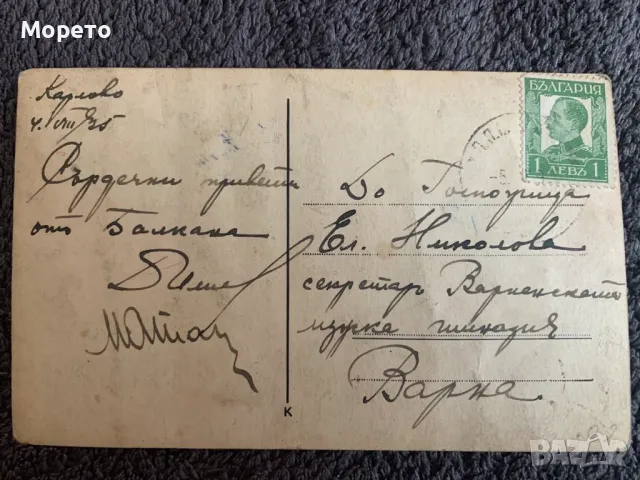 Морето
Карлово
4. VIII 35
Сърдечни привети
отъ Балкана
БЪЛГАРИЯ
1 ЛЕВЪ 1
До Госпожица
Ел. Николова
секретар Варненската
мужка гимназия
Варна
K
BAZAR